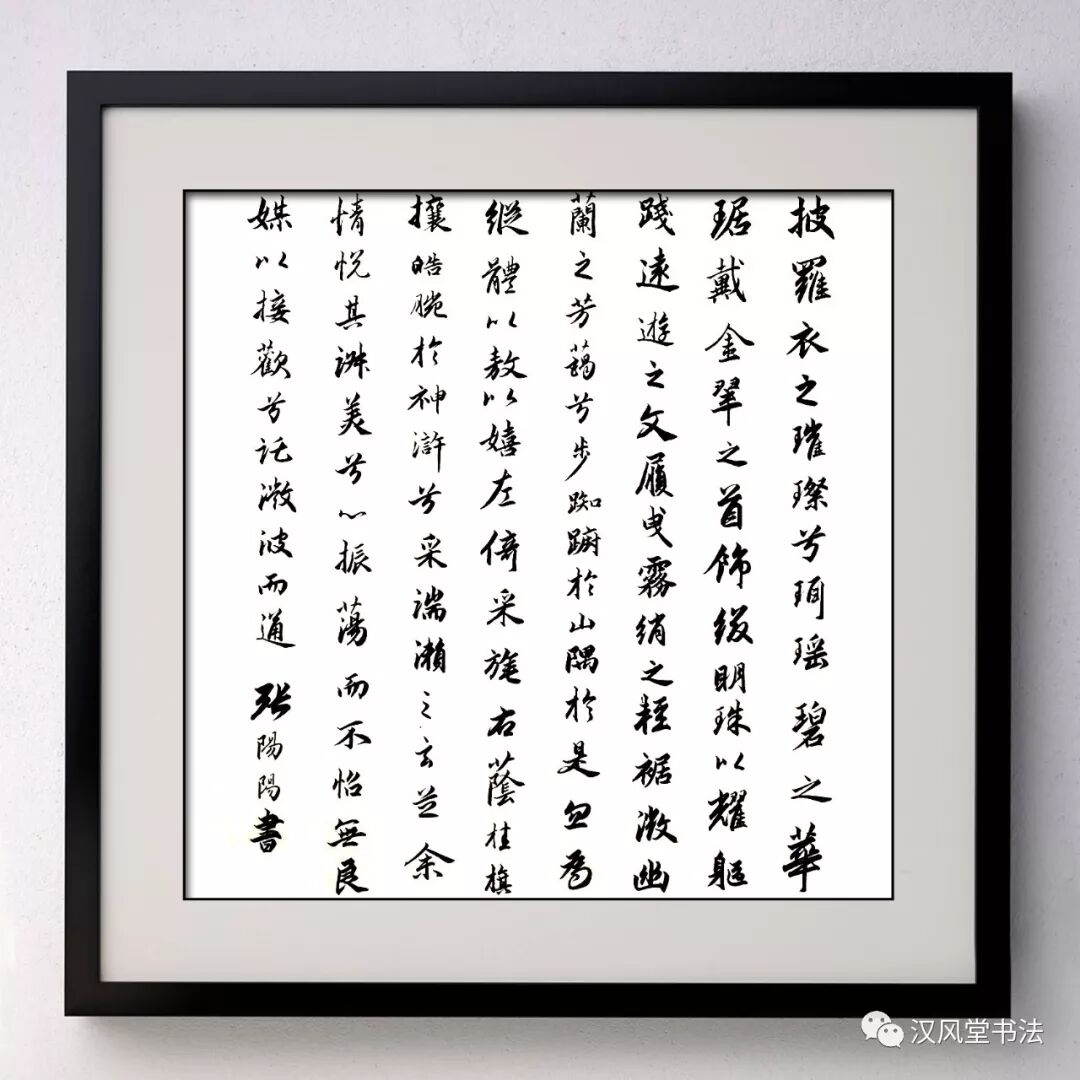 披羅衣之璀璨兮珥瑤碧之華
琚戴金翠之首飾綴明珠以耀軀
踐遠遊之文履曳霧綃之輕裾微幽
蘭之芳藹兮步踟躕於山隅於是忽焉
縱體以敖以嬉左倚采旄右蔭桂旗
攘皓腕於神滸兮采湍瀨之玄芝余
情悅其淑美兮心振蕩而不怡無良
媒以接歡兮託微波而通 張陽陽書
汉风堂书法